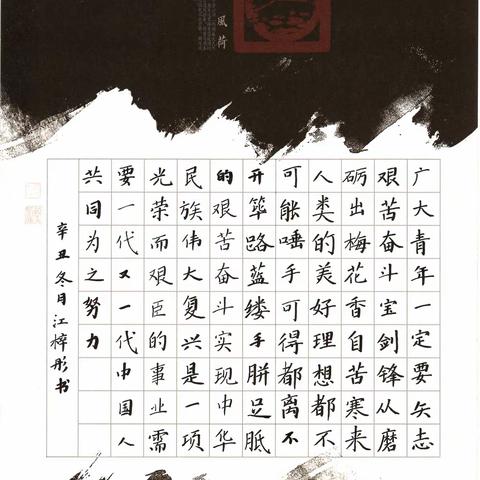 風荷
广大青年一定要矢志
艰苦奋斗宝剑锋从磨
砺出梅花香自苦寒来
人类的美好理想都不
可能唾手可得都离不
开筚路蓝缕手胼足胝
的艰苦奋斗实现中华
民族伟大复兴是一项
光荣而艰臣的事业需
要一代又一代中国人
共同为之努力
辛丑冬月江梓彤书